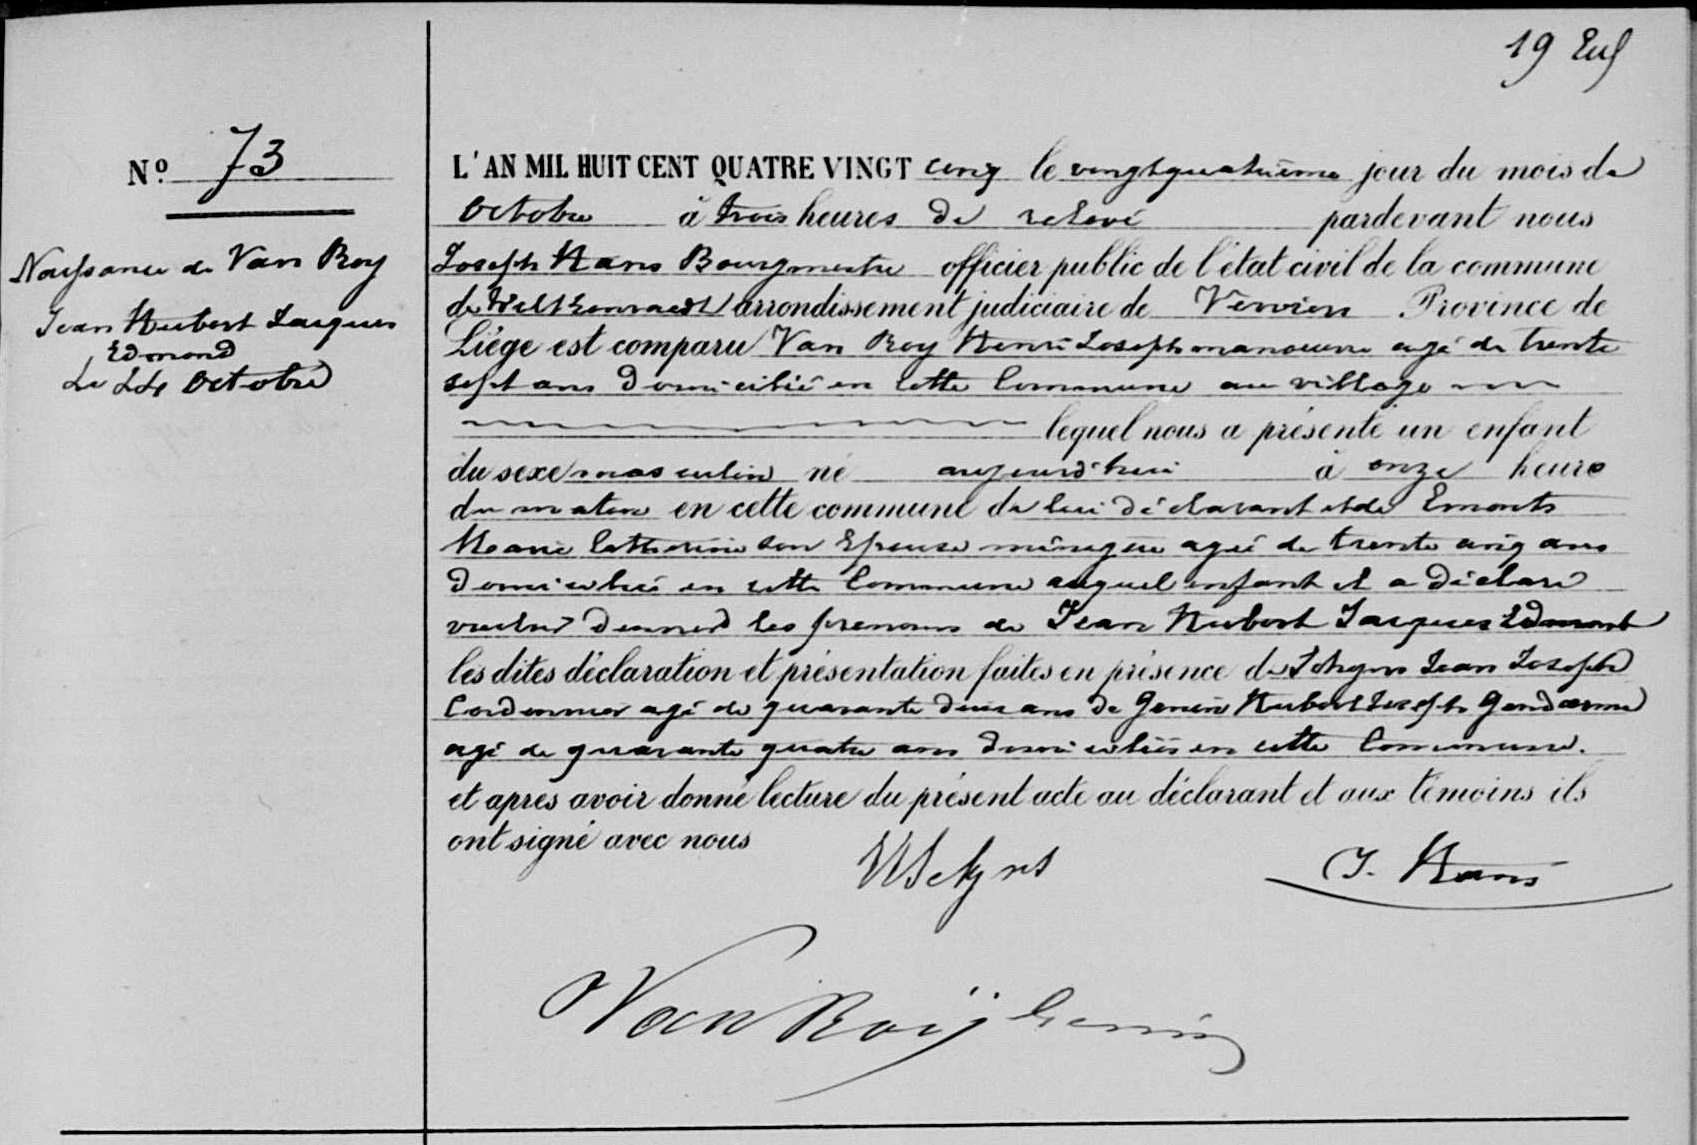 19
Nº 73
Naissance de Van Roy
Jean Hubert Jacques
Edmond
Le 24 Octobre
L'AN MIL HUIT CENT QUATRE VINGT cinq le vingtquatrieme jour du mois de
Octobre à trois heures de relevé pardevant nous
Joseph Hans Bourgmestre officier public de l'état civil de la commune
de Welkenraedt arrondissement judiciaire de Verviers Province de
Liége est comparu Van Roy Henri Joseph manoeuvre agé de trente
sept ans domicilié en cette Commune au village
lequel nous a présenté un enfant
du sexe masculin né aujourd'hui à onze heure
du matin en cette commune de lui déclarant et de Emonts
Marie Catherine son Epouse ménagère agée de trente cinq ans
domiciliée en cette Commune auquel enfant il a déclaré
vouloir donner les prenoms de Jean Hubert Jacques Edmond
les dites déclaration et présentation faites en présence de Jean Joseph
Cordonnier agé de quarante deux ans de Hubert Joseph Gendarme
agé de quarante quatre ans domiciliés en cette Commune.
et apres avoir donné lecture du présent acte au déclarant et aux témoins ils
ont signé avec nous
J. Hans
Van Roÿ henri